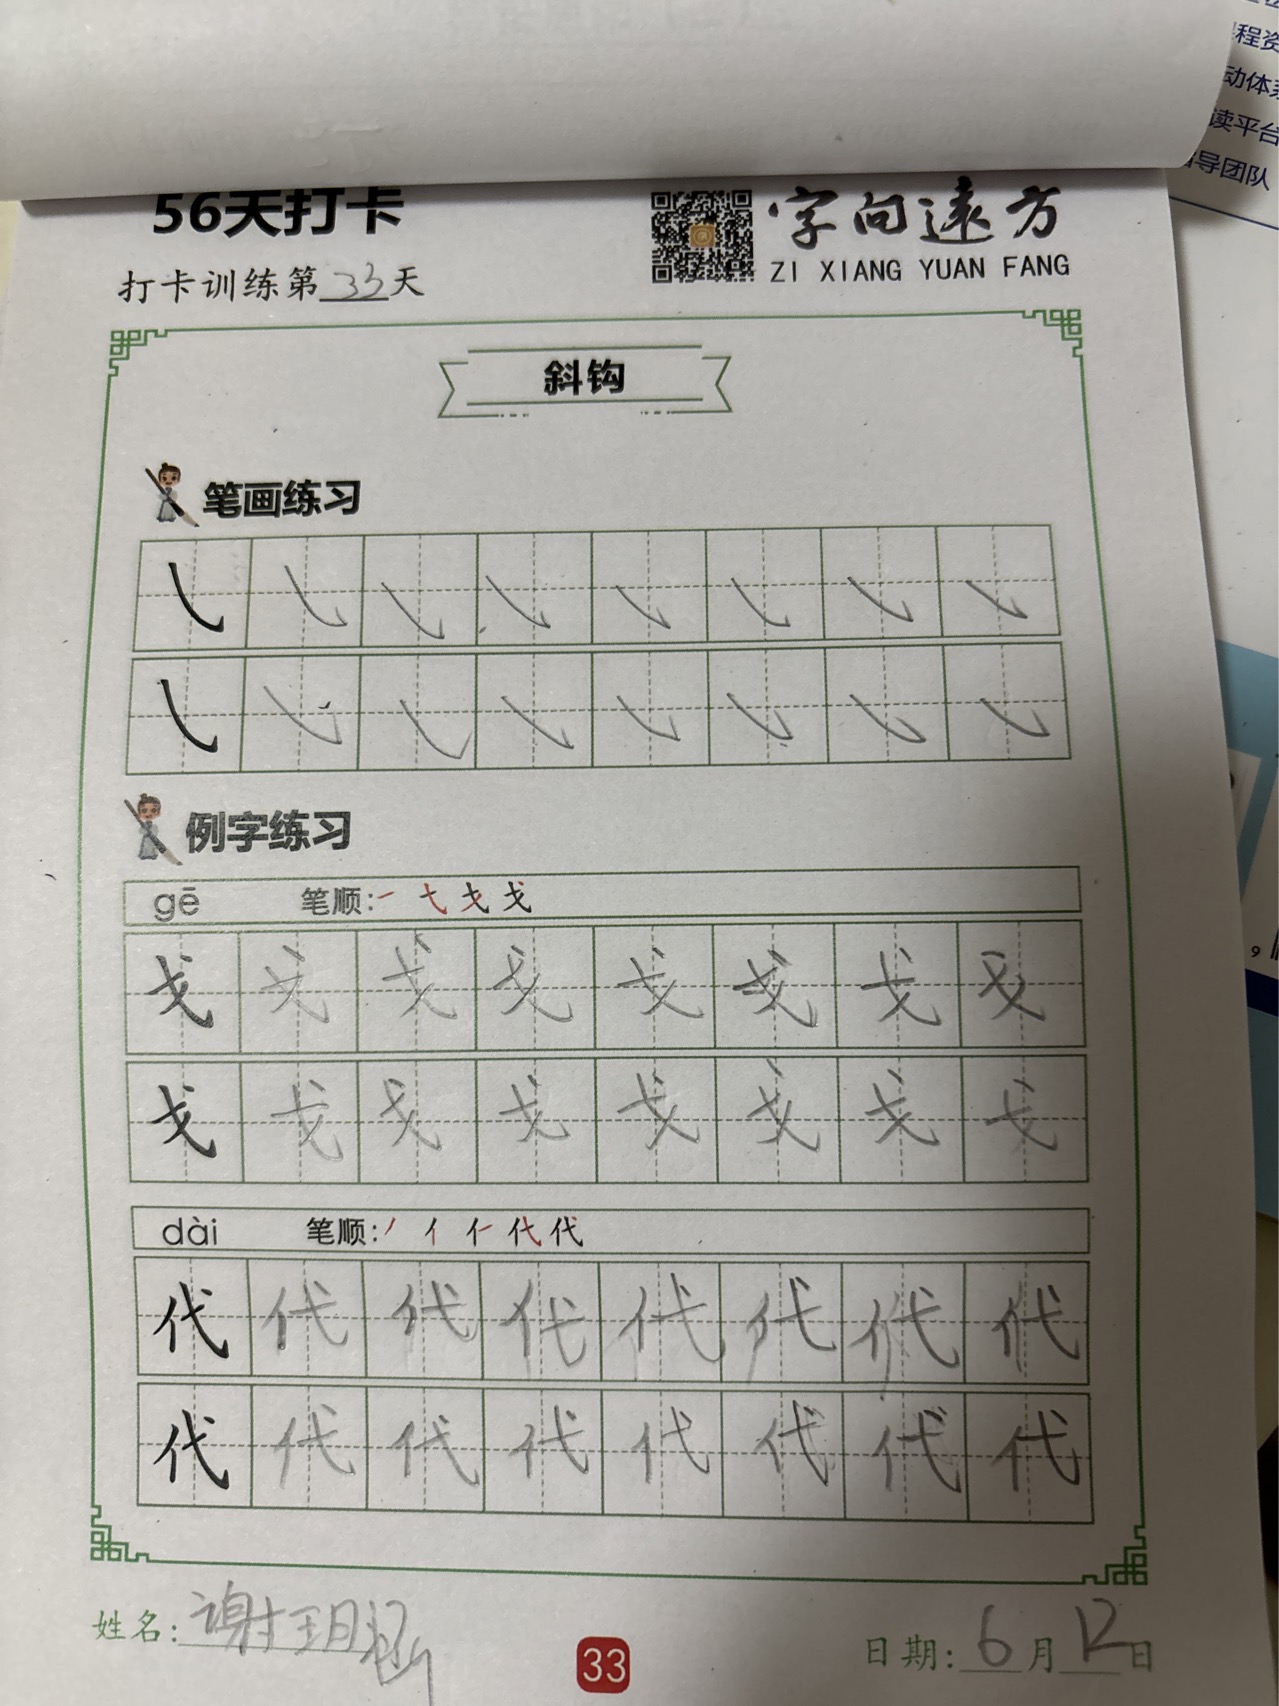 程资
动体系
读平台
指导团队
56天打卡
字向遠方
ZI XIANG YUAN FANG
打卡训练第33天
斜钩
笔画练习
例字练习
gē 笔顺:
戈 戈 戈 戈 戈 戈 戈 戈
戈 戈 戈 戈 戈 戈 戈 戈
dài 笔顺: 丿 亻 代 代
代 代 代 代 代 代 代 代
代 代 代 代 代 代 代 代
姓名: 谢玥涵
33
日期: 6月12日
9